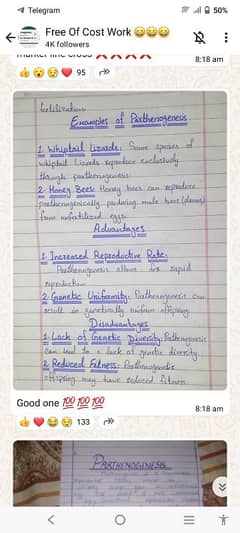 Telegram
50%
Free Of Cost Work 😀😀😀
4K followers
marker line cross ❌❌❌❌
8:18 am
95
fertilization.
Examples of Parthenogenesis
1. Whiptail Lizards: Some species of
whiptail lizards reproduce exclusively
through parthenogenesis.
2. Honey Bees: Honey bees can reproduce
parthenogenically, producing male bees (drones)
from unfertilized eggs.
Advantages
1. Increased Reproductive Rate:
Parthenogenesis allows for rapid
reproduction
2. Genetic Uniformity: Parthenogenesis can
result in genetically uniform offspring.
Disadvantages
1. Lack of Genetic Diversity: Parthenogenesis
can lead to a lack of genetic diversity.
2. Reduced Fitness: Parthenogenetic
offspring may have reduced fitness.
Good one 💯💯💯
133
8:18 am
PARTHENOGENESIS